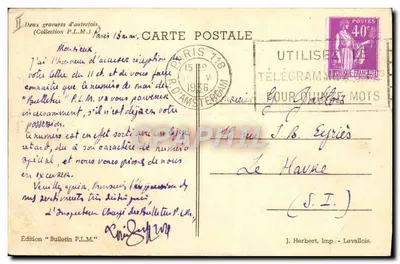 Deux gravures d'autrefois
(Collection P.L.M.)
CARTE POSTALE
Paris
Monsieur,
J'ai l'honneur d'accuser réception
votre lettre du 11 ct. et de vous faire
connaître que le numéro de mai de
"Bulletin" P.L.M. va vous parvenir
incessamment, s'il n'est déjà en votre
possession.
Ce numéro est en effet sorti avec
retard, du à son caractère de numéro
spécial, et nous vous prions de nous
en excuser.
Veuillez agréer, Monsieur, l'expression de
nos sentiments très distingués,
L'Inspecteur Chargé des Bulletins P.L.M.
Édition "Bulletin P.L.M."
PARIS 118
R. D'AMSTERDAM
15
1936
POSTES
40c
UTILISEZ
TÉLÉGRAMMES
POUR MOTS
G.
rue J. B. Eyriès
Le Havre
(S. I.)
J. Herbert, Imp. - Levallois.